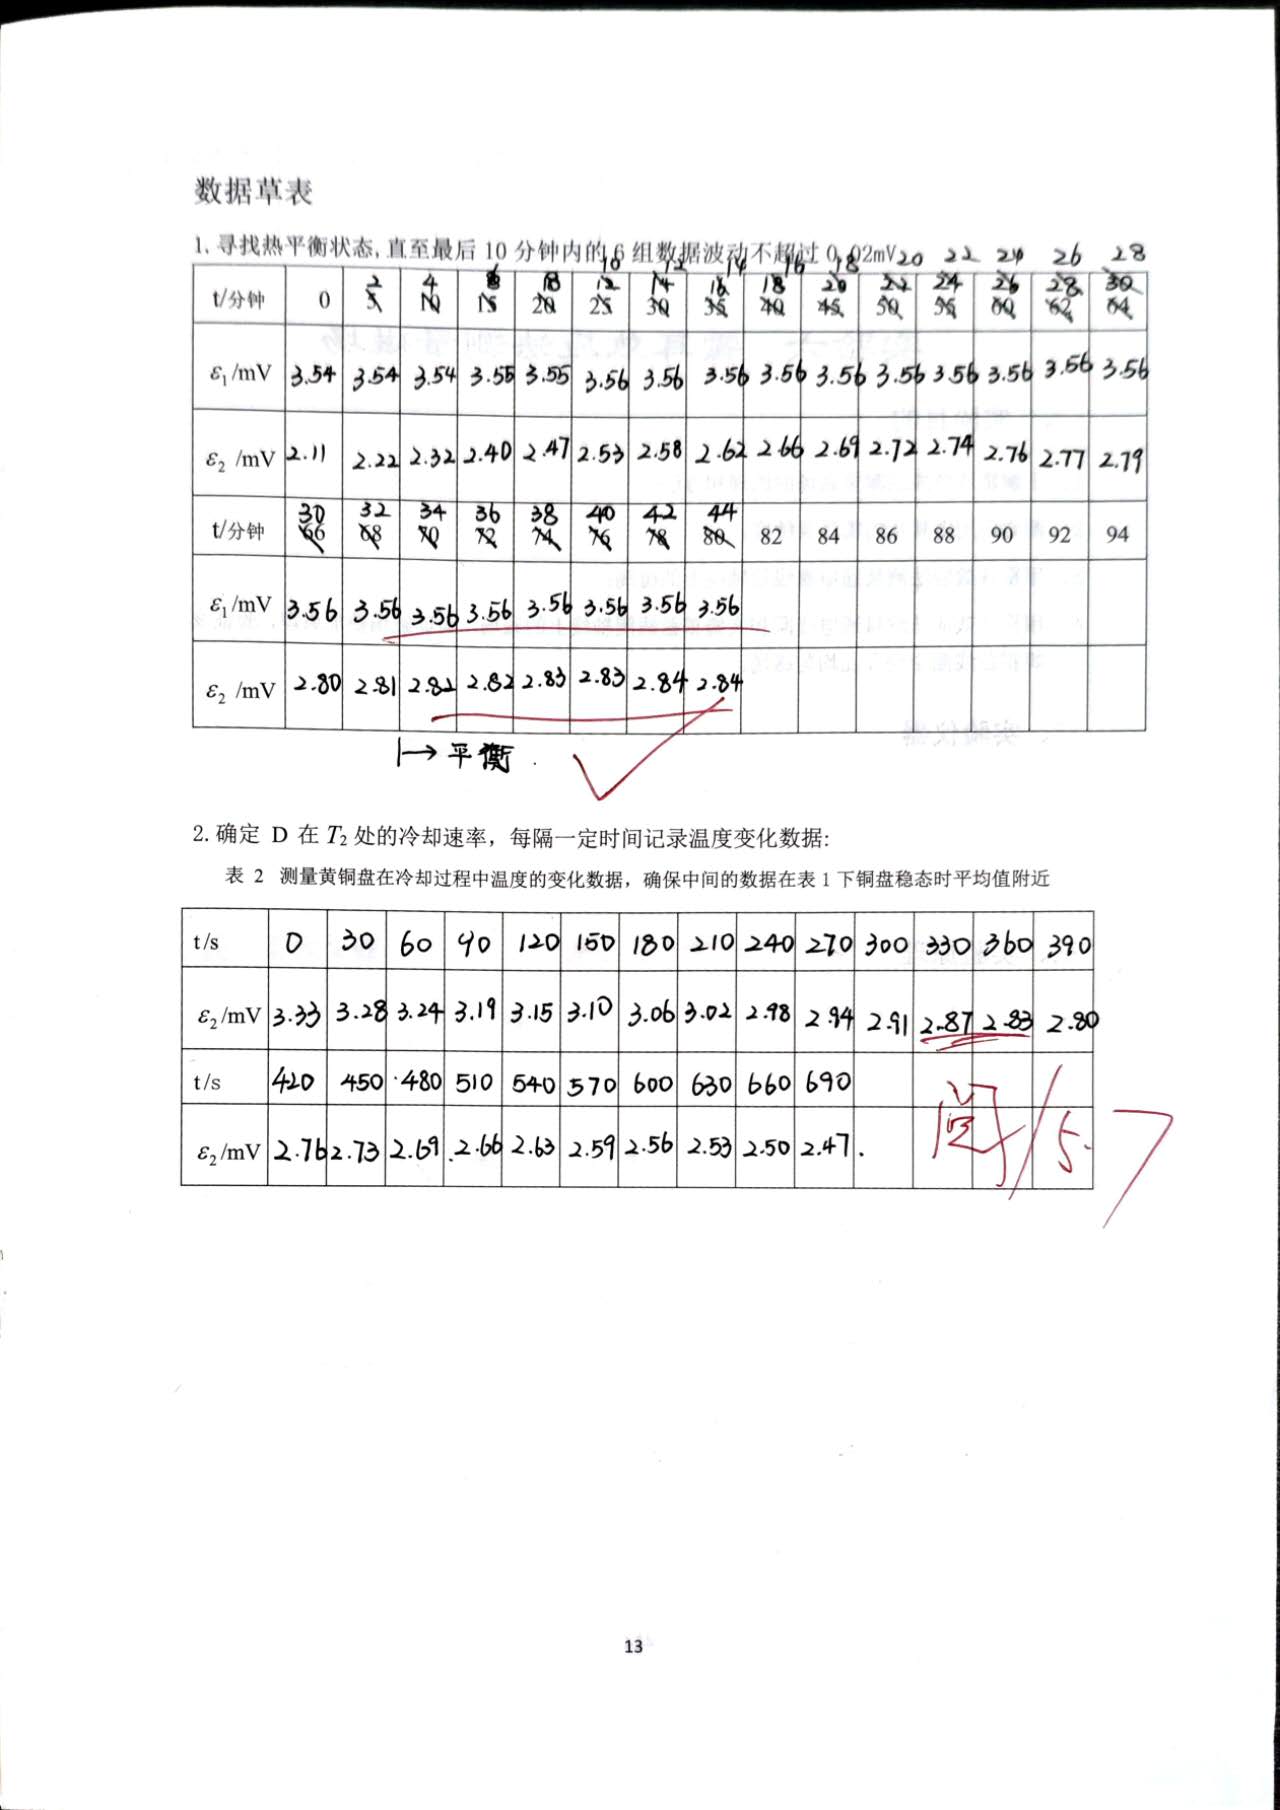 数据草表
1. 寻找热平衡状态,直至最后 10 分钟内的 6 组数据波动不超过 0.02mV
10 12 14 16 18 20 22 24 26 28
2 4 8 18 12 14 16 18 20 22 24 26 28 30
t/分钟 0 5 10 15 20 25 30 35 40 45 50 55 60 62 64
ε₁/mV 3.54 3.54 3.54 3.55 3.55 3.56 3.56 3.56 3.56 3.56 3.56 3.56 3.56 3.56 3.56
ε₂ /mV 2.11 2.22 2.32 2.40 2.47 2.53 2.58 2.62 2.66 2.69 2.72 2.74 2.76 2.77 2.79
30 32 34 36 38 40 42 44
t/分钟 66 68 70 72 74 76 78 80 82 84 86 88 90 92 94
ε₁/mV 3.56 3.56 3.56 3.56 3.56 3.56 3.56 3.56
ε₂ /mV 2.80 2.81 2.82 2.82 2.83 2.83 2.84 2.84
|→ 平衡
2. 确定 D 在 T₂ 处的冷却速率，每隔一定时间记录温度变化数据:
表 2 测量黄铜盘在冷却过程中温度的变化数据，确保中间的数据在表 1 下铜盘稳态时平均值附近
t/s 0 30 60 90 120 150 180 210 240 270 300 330 360 390
ε₂/mV 3.33 3.28 3.24 3.19 3.15 3.10 3.06 3.02 2.98 2.94 2.91 2.87 2.83 2.80
t/s 420 450 480 510 540 570 600 630 660 690
ε₂/mV 2.76 2.73 2.69 2.66 2.63 2.59 2.56 2.53 2.50 2.47
5.7
13